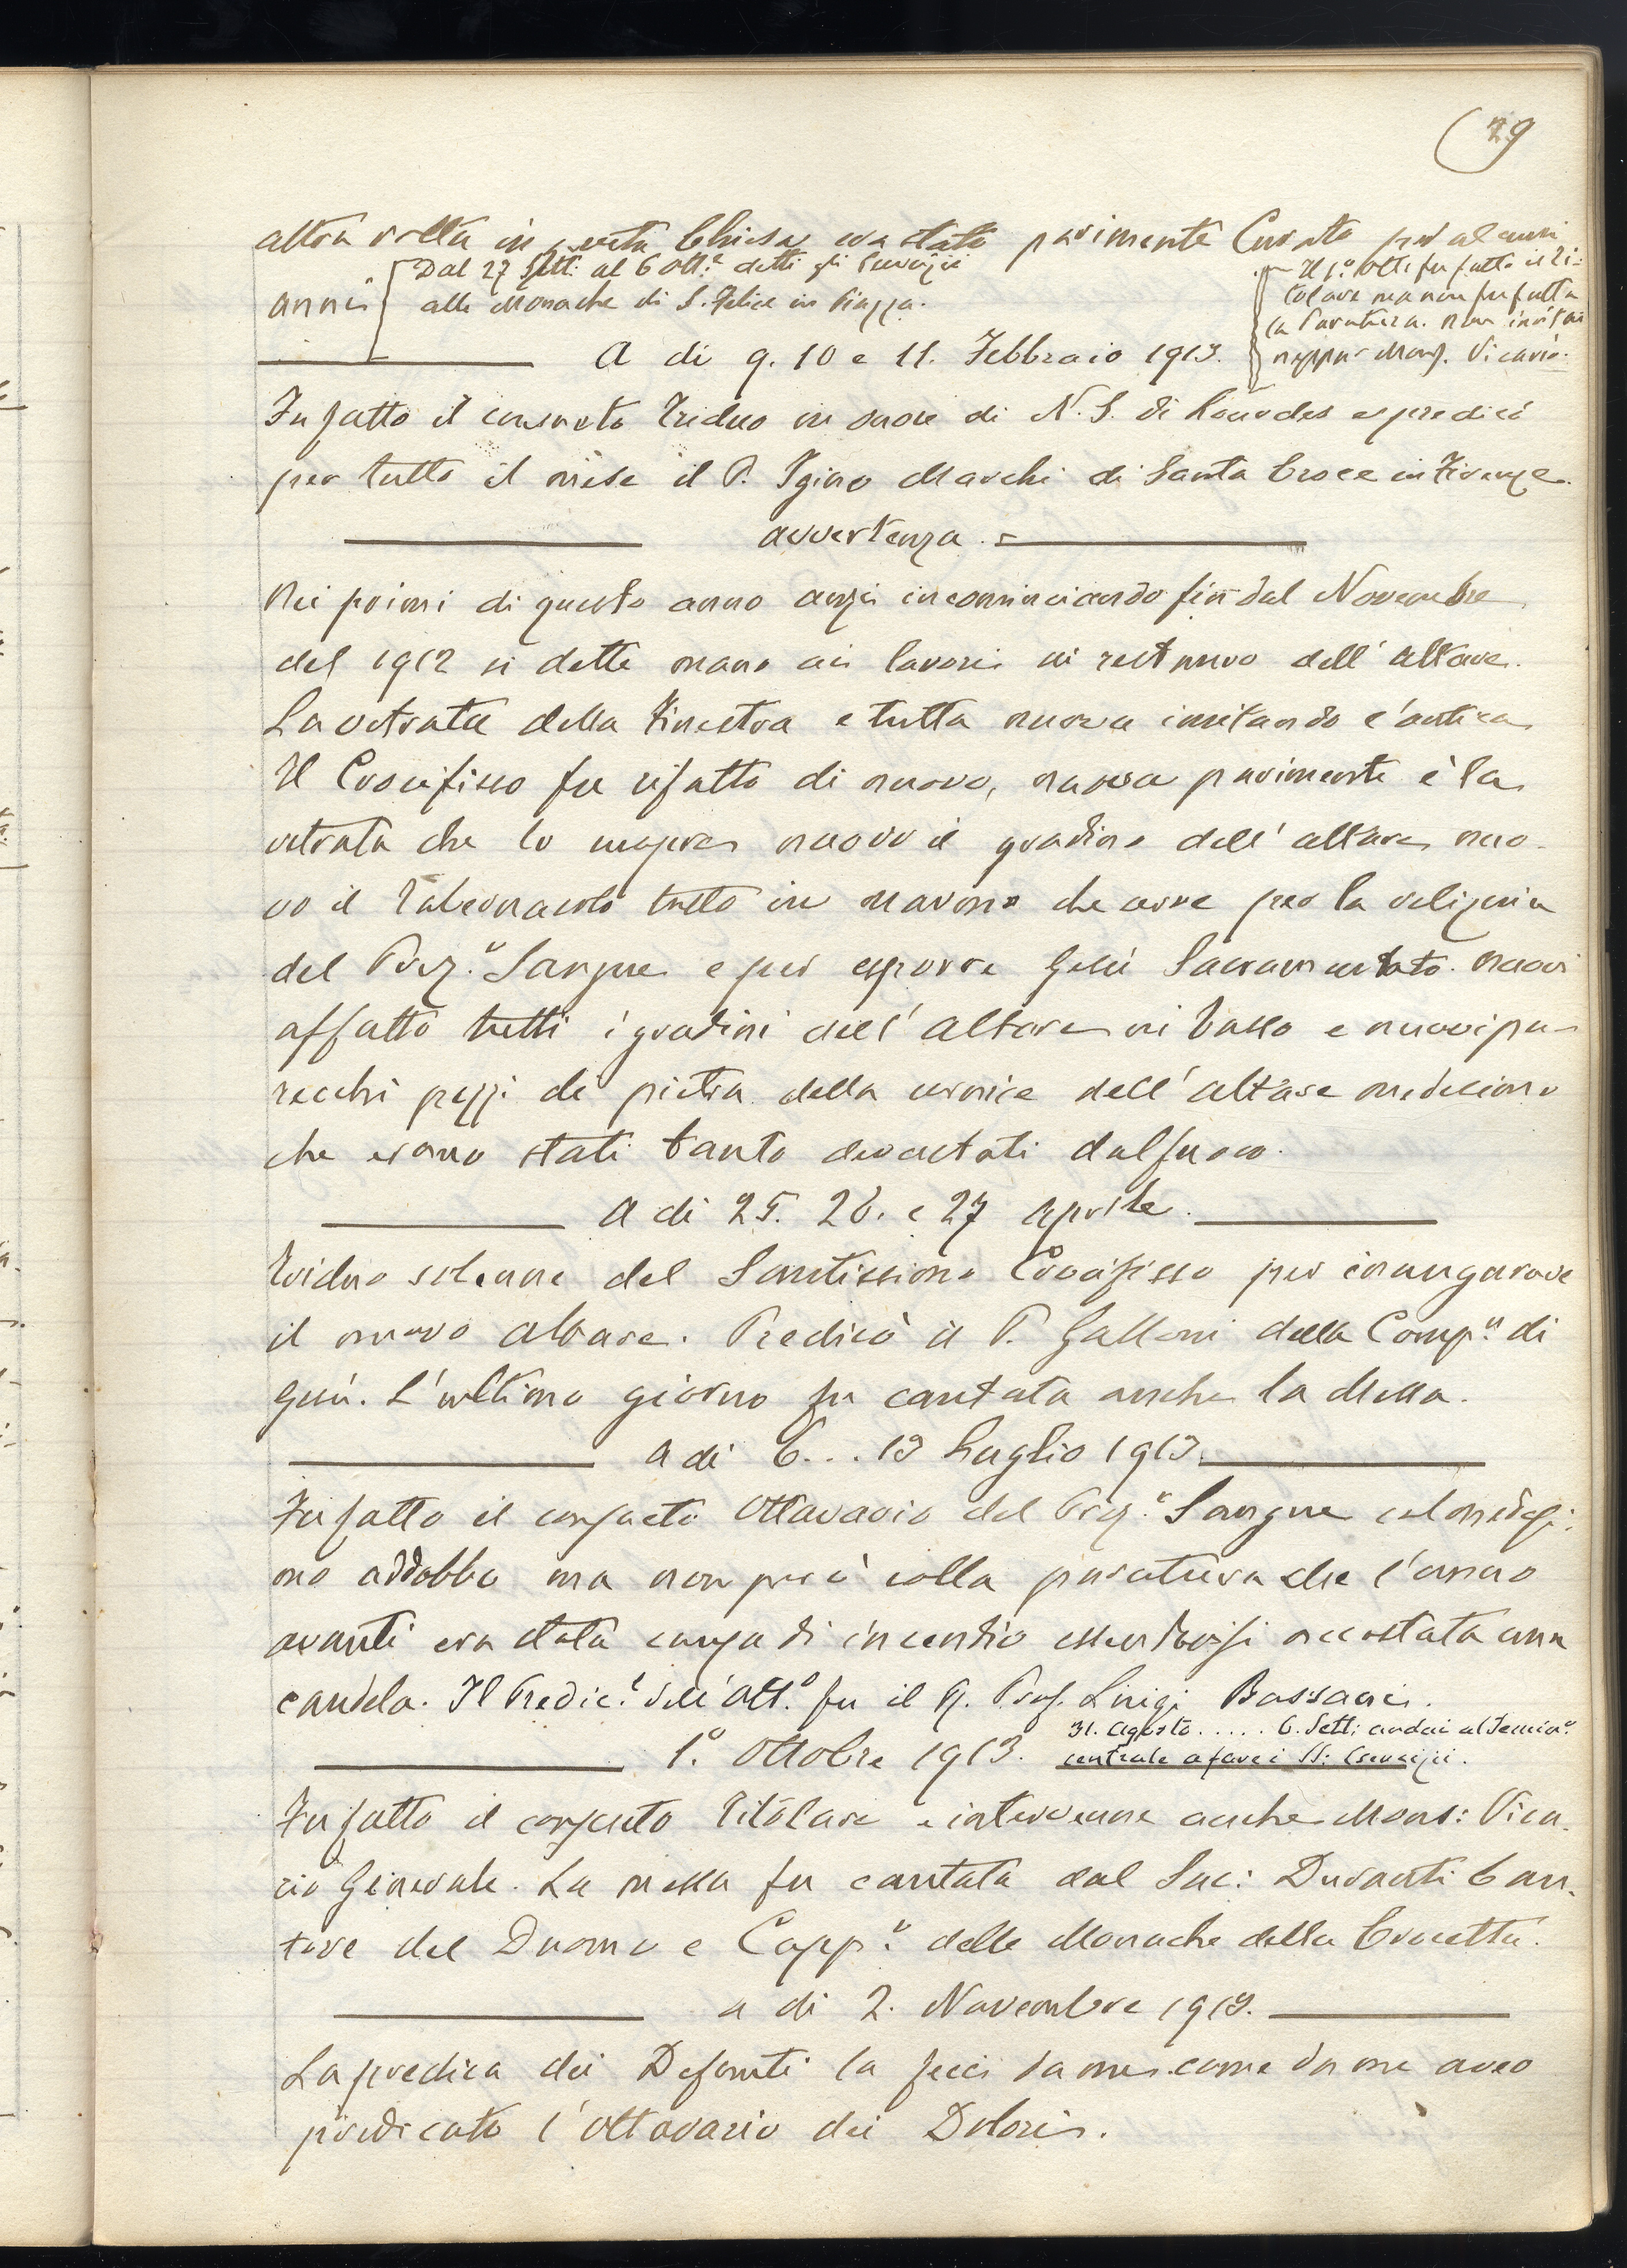 29
altra volta in questa Chiesa era stato parimente Curato per alcuni
anni
Dal 27 Sett: al 6 Ott.e detti gli Esercizii
alle Monache di S. Felice in Piazza.
Il 1.o Ott: fu fatto il Ti-
tolare ma non fu fatta
la Paratura. Non invitai
neppur Mons. Vicario.
A di 9. 10 e 11. Febbraio 1913.
Fu fatto il consueto Triduo in onore di N. S. di Lourdes e predicò
per tutto il mese il P. Igino Marchi di Santa Croce in Firenze.
avvertenza. =
Nei primi di questo anno anzi incominciando fin dal Novembre
del 1912 si dette mano ai lavori di restauro dell' altare.
La vetrata della Finestra e tutta nuova imitando l'antica
Il Crocifisso fu rifatto di nuovo, nuova parimente è la
vetrata che lo cuopre nuovo il gradino dell' altare, nuo-
vo il Tabernacolo tutto in marmo che serve per la reliquia
del Prez.o Sangue e per esporre Gesù Sacramentato. Nuovi
affatto tutti i gradini dell' altare in basso e nuovi pa-
recchi pezzi di pietra della cornice dell' altare medesimo
che erano stati tanto devastati dal fuoco.
A di 25. 26. e 27 aprile.
Triduo solenne del Santissimo Crocifisso per inaugurare
il nuovo altare. Predicò il P. Galloni della Comp.a di
Gesù. L'ultimo giorno fu cantata anche la Messa.
A di 6...13 Luglio 1913.
Fu fatto il consueto Ottavario del Prez.o Sangue col medesi-
mo addobbo ma non però colla paratura che l'anno
avanti era stata causa di incendio essendovisi accostata una
candela. Il Predic.e dell'Ott.o fu il P. Prof. Luigi Bassani.
31. Agosto ..... 6. Sett: andai al Semin.o
centrale a fare i SS: Esercizii.
1.o Ottobre 1913.
Fu fatto il consueto Titolare e intervenne anche Mons: Vica-
rio Generale. La messa fu cantata dal Sac: Duranti Can-
tore del Duomo e Capp.o delle Monache della Crocetta.
a di 2. Novembre 1913.
La predica dei Defunti la feci da me come da me aveo
predicato l'Ottavario dei Dolori.